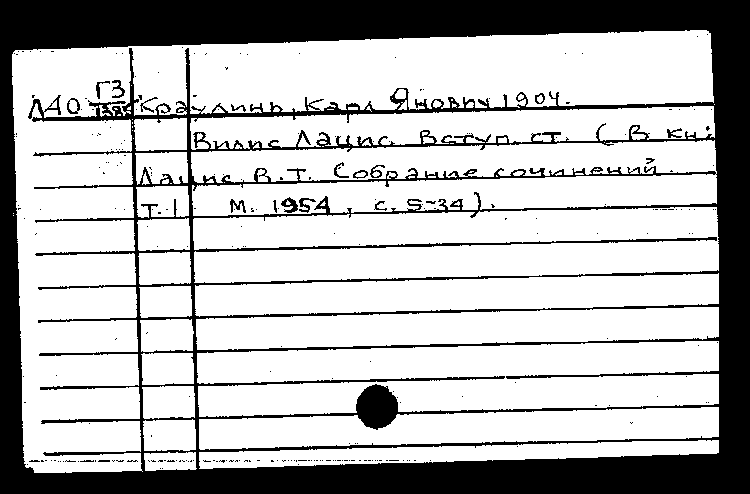 Л40 Г3 Краулинь, Карл Янович 1904.
Вилис Лацис. Вступ. ст. (В кн:
Лацис, В.Т. Собрание сочинений.
Т.1 М. 1954, с. 5-34).